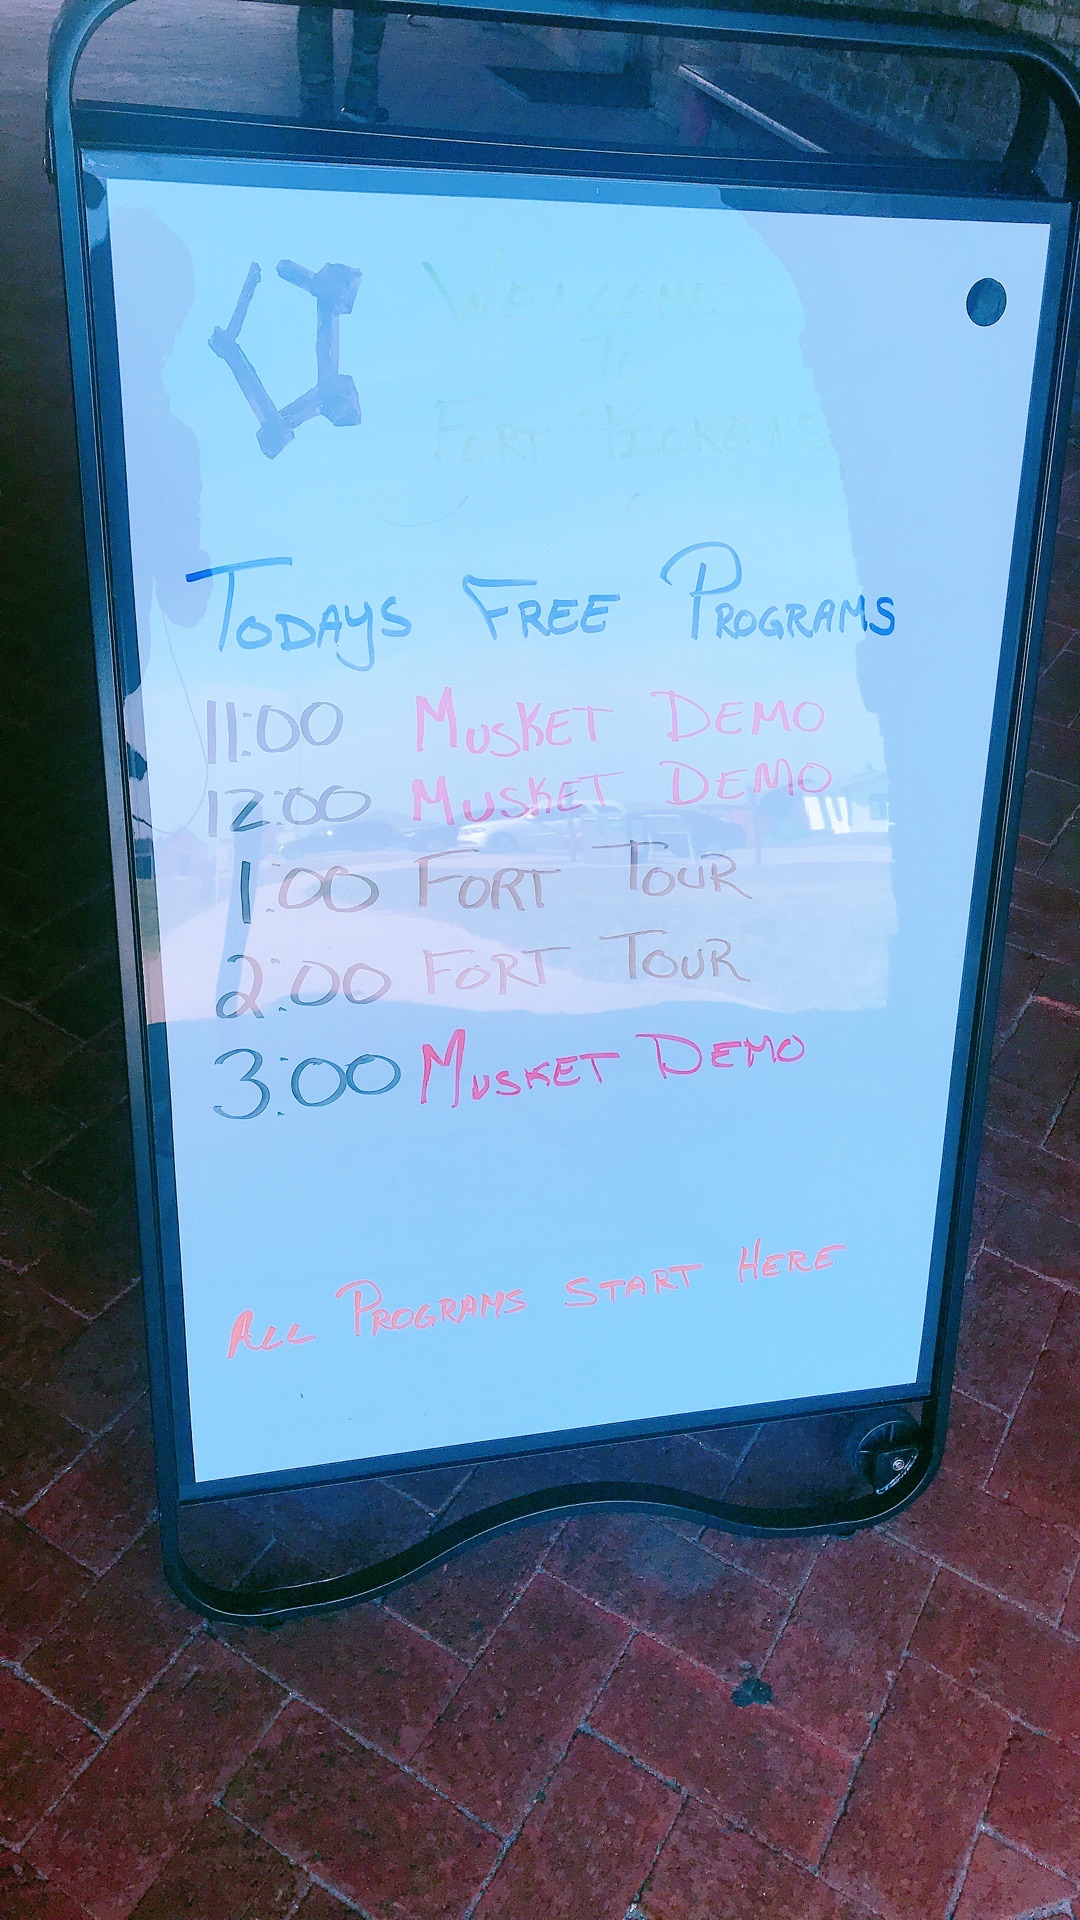 WELCOME
TO
FORT PICKENS
TODAYS FREE PROGRAMS
11:00 MUSKET DEMO
12:00 MUSKET DEMO
1:00 FORT TOUR
2:00 FORT TOUR
3:00 MUSKET DEMO
ALL PROGRAMS START HERE